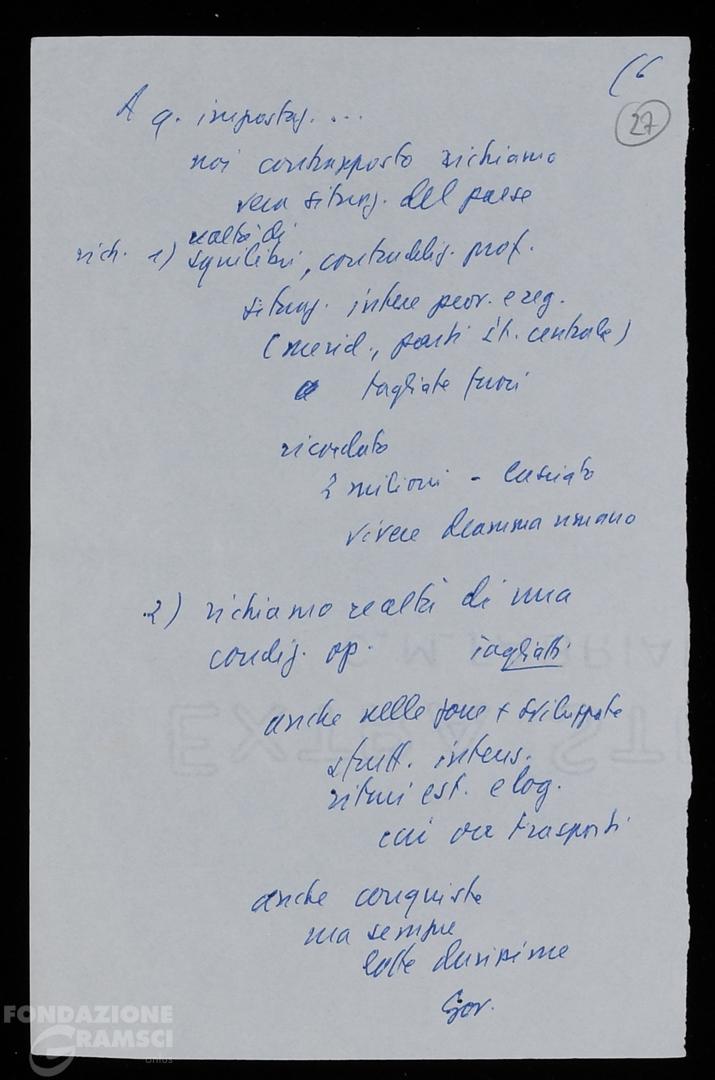 (6
27
A q. impostaz. ...
noi contrapposto richiamo
vera situaz. del paese
realtà di
rich. 1) squilibri, contraddiz. prof.
situaz. intere prov. e reg.
(merid., parti it. centrale)
tagliate fuori
ricordato
2 milioni - lasciato
vivere dramma umano
2) richiamo realtà di una
condiz. op. tagliati
anche nelle zone + sviluppate
sfrutt. intens.
ritmi est. e log.
cui ore trasporti
anche conquiste
ma sempre
lotte durissime
Gov.
FONDAZIONE
GRAMSCI
onlus